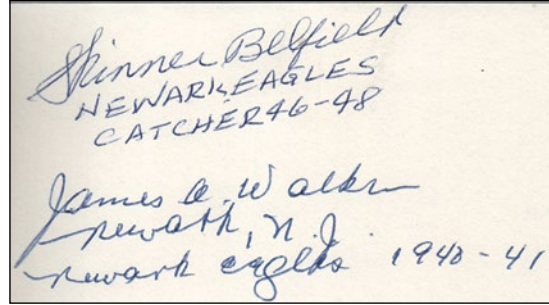 Skinner Belfield
NEWARK EAGLES
CATCHER 46-48
James A. Walker
Newark, N.J.
Newark Eagles 1940-41